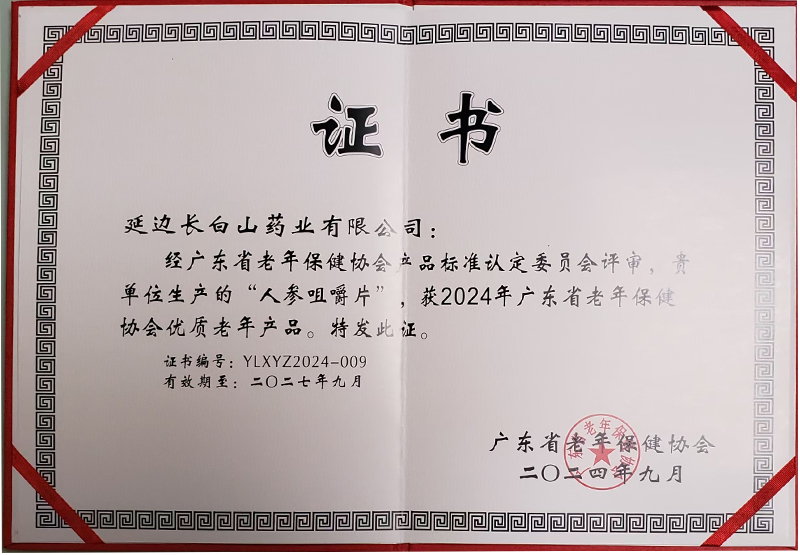 证书
延边长白山药业有限公司：
经广东省老年保健协会产品标准认定委员会评审，贵
单位生产的“人参咀嚼片”，获2024年广东省老年保健
协会优质老年产品。特发此证。
证书编号：YLXYZ2024-009
有效期至：二〇二七年九月
广东省老年保健协会
二〇二四年九月
广东省老年保健协会